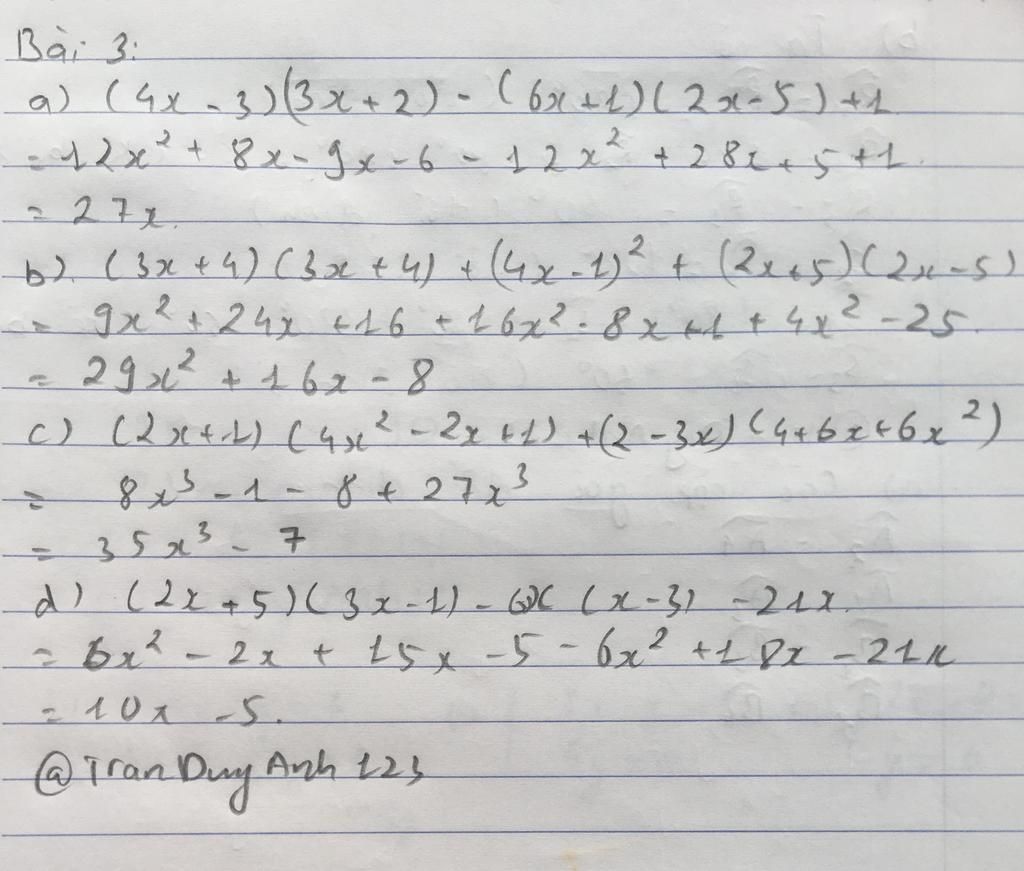 Bài 3:
a) (4x - 3)(3x + 2) - (6x + 1)(2x - 5) + 1
= 12x² + 8x - 9x - 6 - 12x² + 28x + 5 + 1.
= 27x.
b). (3x + 4)(3x + 4) + (4x - 1)² + (2x + 5)(2x - 5)
= 9x² + 24x + 16 + 16x² - 8x + 1 + 4x² - 25.
= 29x² + 16x - 8
c) (2x + 1)(4x² - 2x + 1) + (2 - 3x)(4 + 6x + 6x²)
= 8x³ - 1 - 8 + 27x³
= 35x³ - 7
d) (2x + 5)(3x - 1) - 6x(x - 3) - 21x.
= 6x² - 2x + 15x - 5 - 6x² + 18x - 21x
= 10x - 5.
@Tran Duy Anh 123